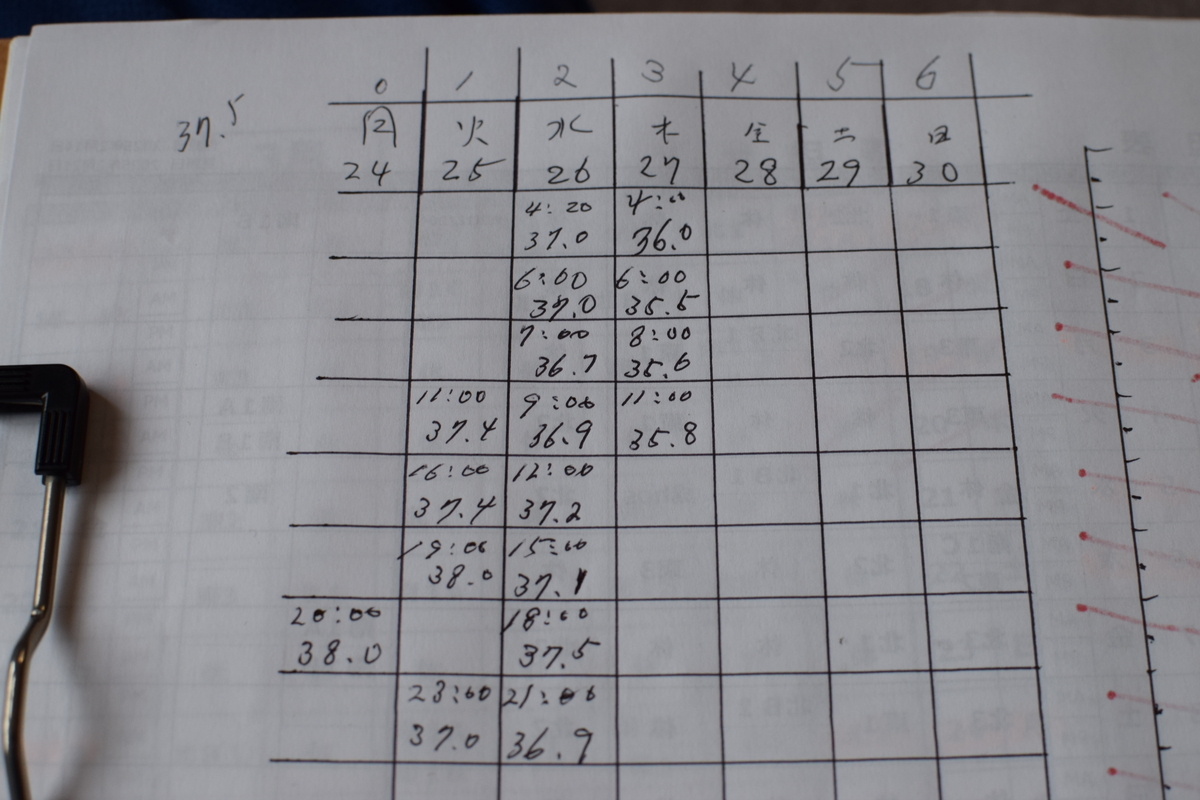 37.5
0 1 2 3 4 5 6
月 火 水 木 金 土 日
24 25 26 27 28 29 30
4:20 4:00
37.0 36.0
6:00 6:00
37.0 35.5
7:00 8:00
36.7 35.6
11:00 9:00 11:00
37.4 36.9 35.8
16:00 12:00
37.4 37.2
19:00 15:00
38.0 37.1
20:00 18:00
38.0 37.5
23:00 21:00
37.0 36.9